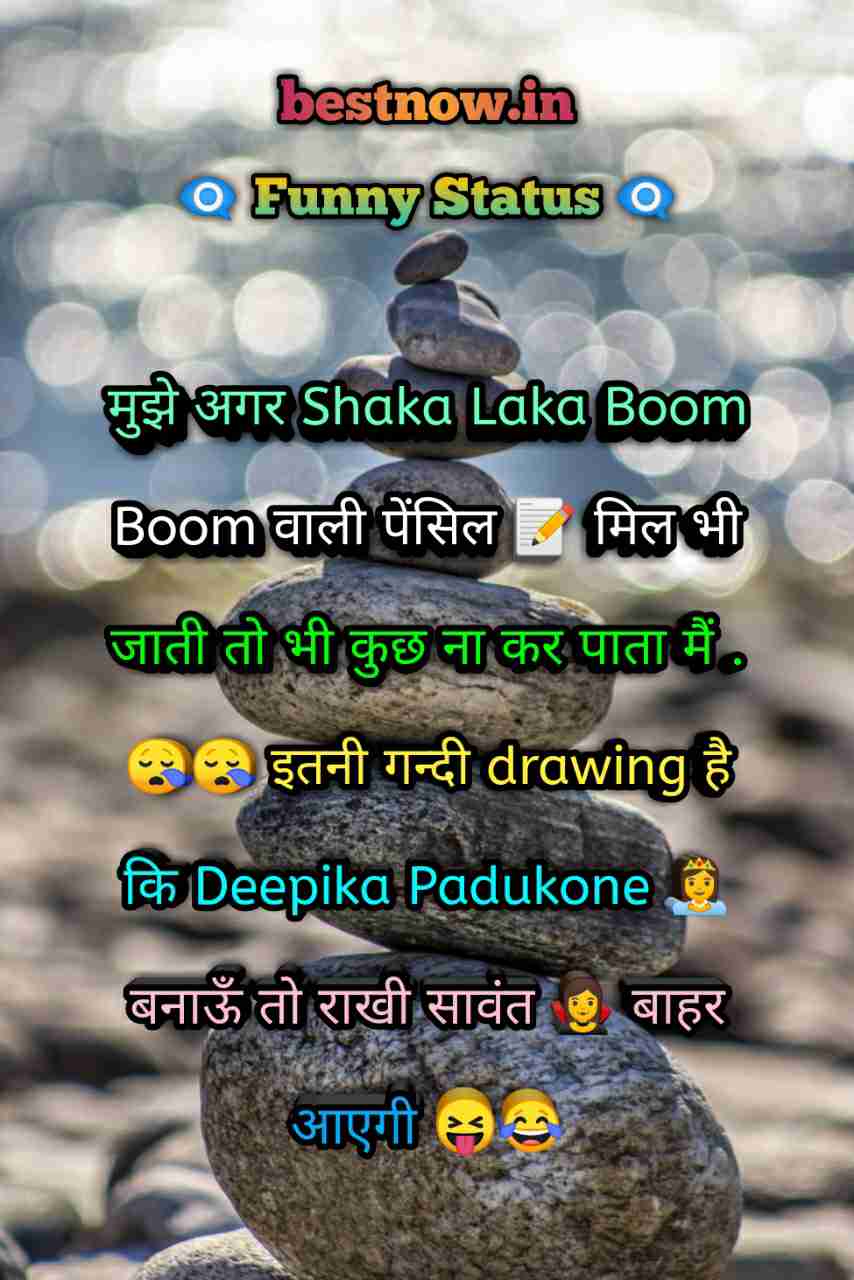 bestnow.in
👁️‍🗨️ Funny Status 👁️‍🗨️
मुझे अगर Shaka Laka Boom
Boom वाली पेंसिल 📝 मिल भी
जाती तो भी कुछ ना कर पाता मैं .
😪😪 इतनी गन्दी drawing है
कि Deepika Padukone 👸
बनाऊँ तो राखी सावंत 🧛‍♀️ बाहर
आएगी 😝😂